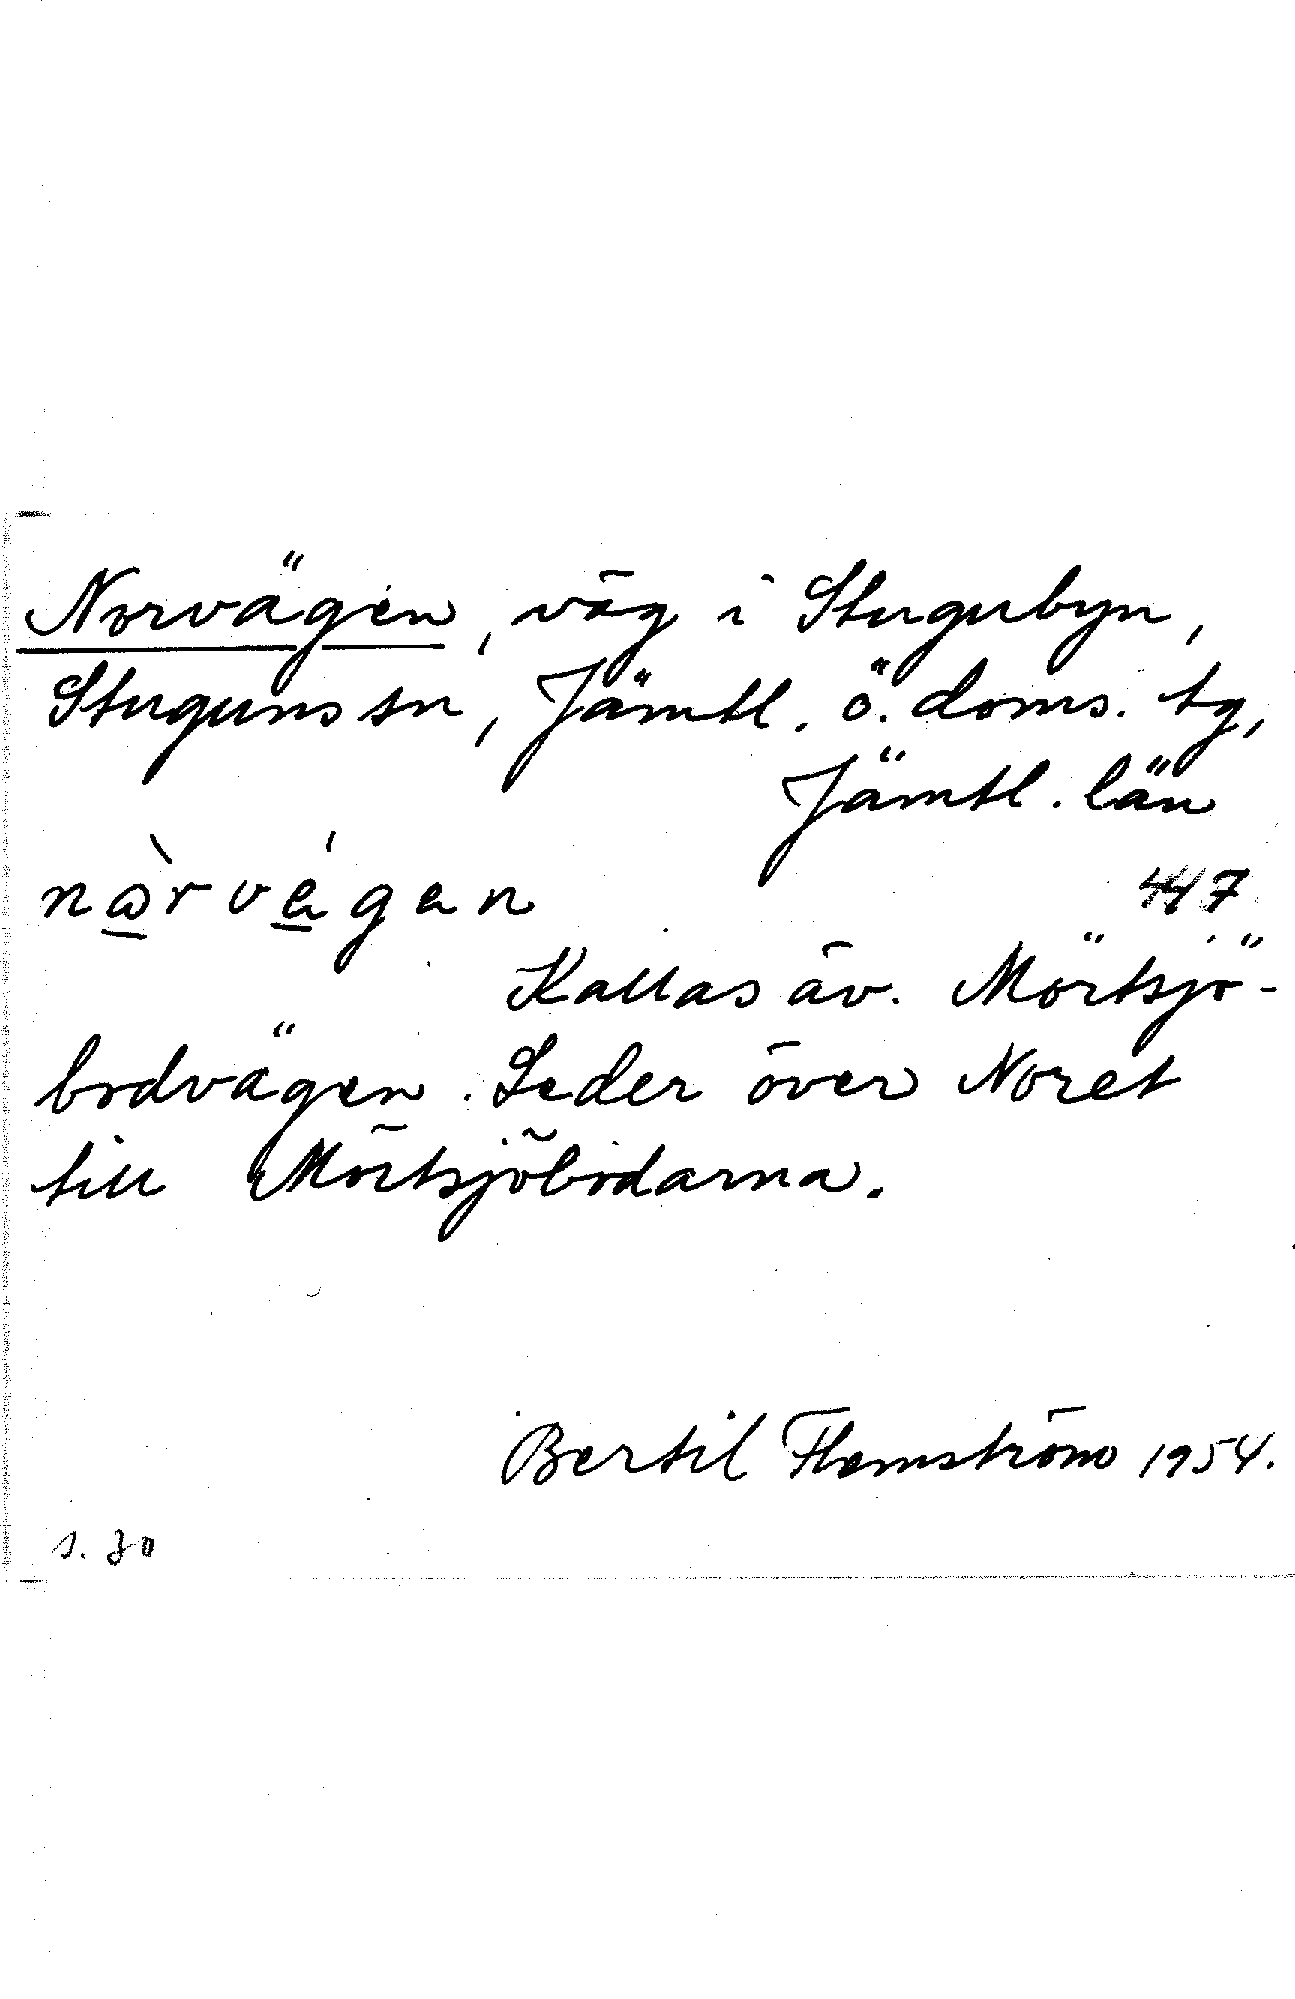 Norvägen, väg i Stugubyn,
Stuguns sn, Jämtl. ö. doms. tg,
Jämtl. län
nòrvégen
447
Kallas äv. Mörtsjö-
bodvägen. Leder över Noret
till Mörtsjöbodarna.
Bertil Flemström 1954.
s. 30